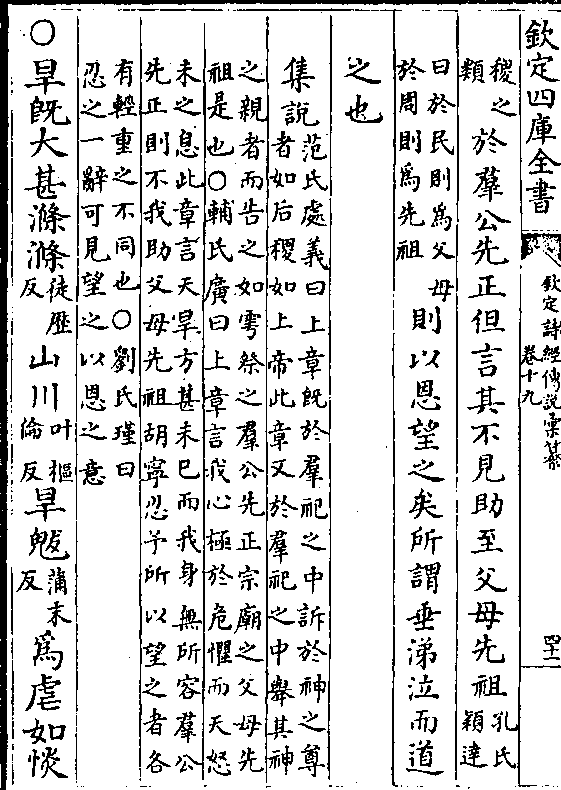 欽定四庫全書
欽定詩經傳說彙纂
卷十九
四十二
稷之
類
於羣公先正但言其不見助至父母先祖
孔氏
穎達
曰於民則為父母
於周則為先祖
則以恩望之矣所謂垂涕泣而道
之也
集說
范氏處義曰上章既於羣祀之中訴於神之尊
者如后稷如上帝此章又於羣祀之中舉其神
之親者而告之如雩祭之羣公先正宗廟之父母先
祖是也○輔氏廣曰上章言我心極於危懼而天怒
未之息此章言天旱方甚未已而我身無所容羣公
先正則不我助父母先祖胡寧忍予所以望之者各
有輕重之不同也○劉氏瑾曰
忍之一辭可見望之以恩之意
○旱既大甚滌滌
徒歷
反
山川
叶樞
倫反
旱魃
蒲末
反
為虐如惔